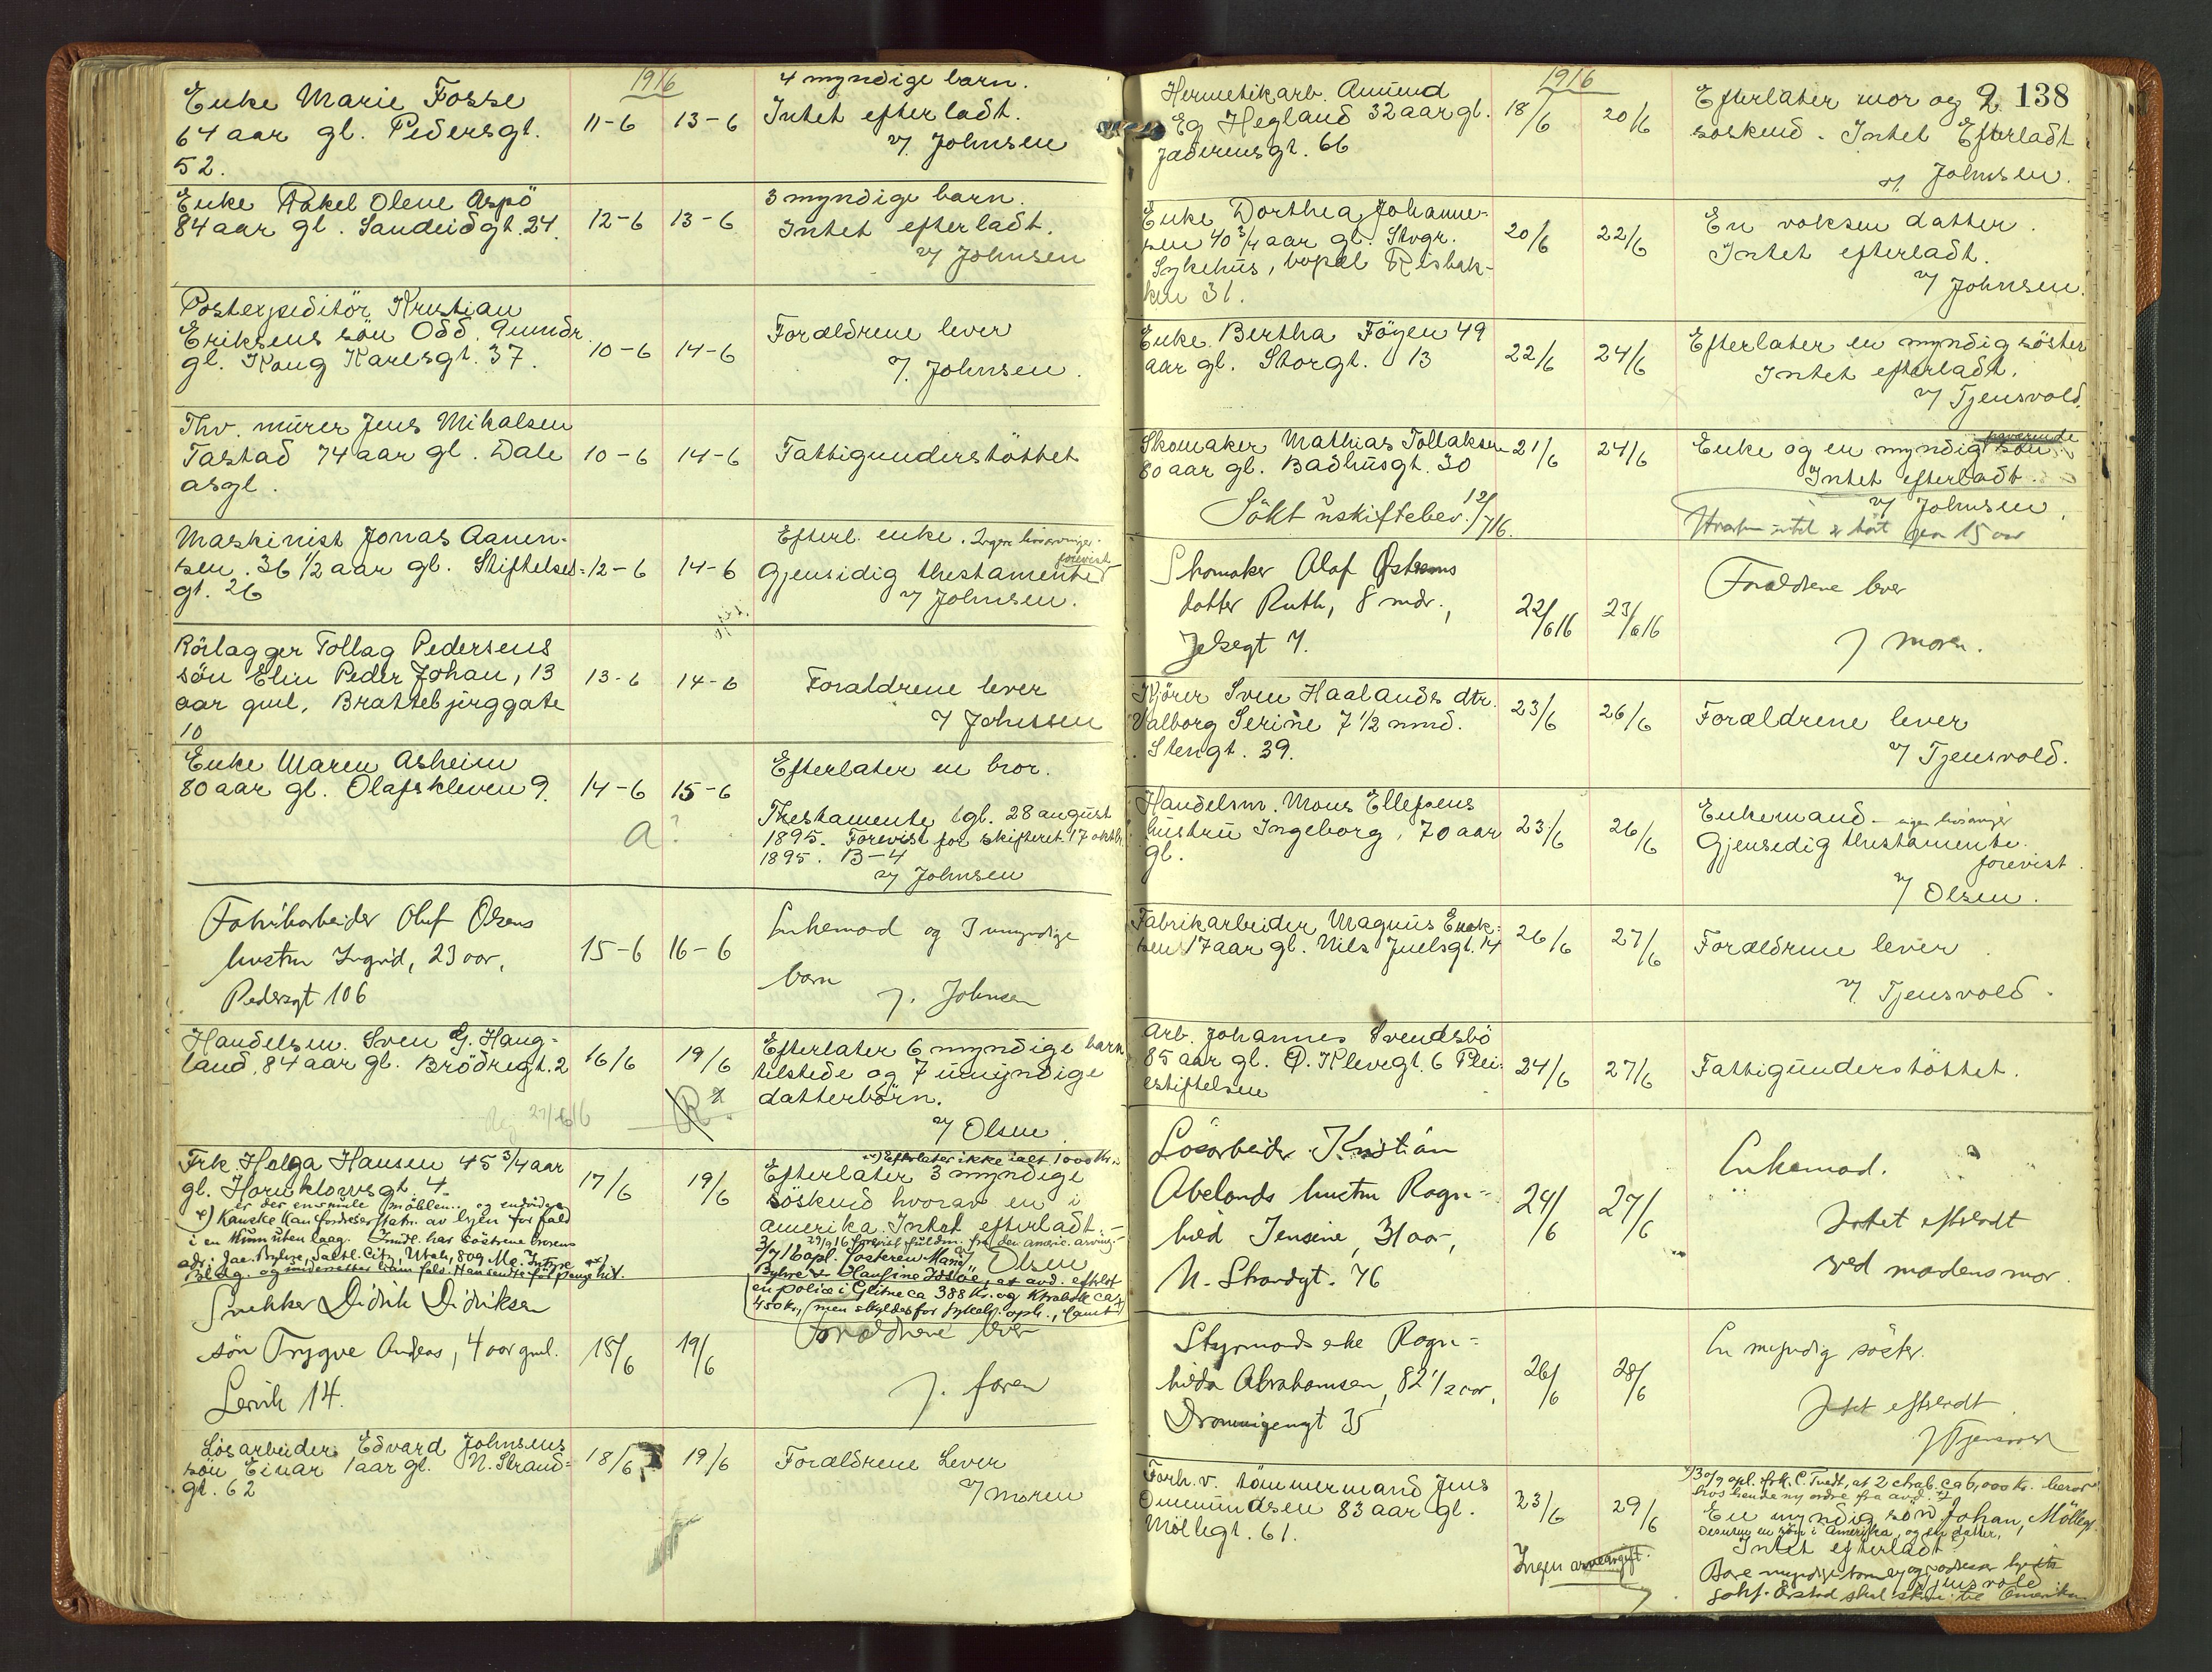 1916
Enke Marie Fosse
64 aar gl. Pedersgt.
52.
11-6
13-6
4 myndige barn.
Intet efterladt.
v/ Johnsen
Enke Rakel Olene Aspö
84 aar gl. Sandeidgt. 24.
12-6
13-6
3 myndige barn.
Intet efterladt.
v/ Johnsen
Postexpeditör Kristian
Eriksens sön Odd, 9 mndr
gl. Kong Karlsgt. 37.
10-6
14-6
Forældrene lever
v/. Johnsen.
Fhv. murer Jens Mikalsen
Tastad 74 aar gl. Dale
asyl.
10-6
14-6
Fattigunderstöttet
Maskinist Jonas Aanen-
sen. 36 1/2 aar gl. Stiftelses-
gt. 26
12-6
14-6
Efterl. enke. Ingen livsarvinger.
forevist
Gjensidig thestamente
v/ Johnsen.
Rörlægger Tollag Pedersens
sön Elin Peder Johan, 13
aar gml, Brattebjerggate
10
13-6
14-6
Forældrene lever
v/ Johnsen
Enke Maren Asheim
80 aar gl. Olafskleven 9.
14-6
15-6
a?
Efterlater en bror.
Thestamente tgl. 28 august
1895. Forevist for skifteret. 17 oktbr.
1895. B-4
v/ Johnsen
Fabrikarbeider Oluf Olsens
hustru Ingrid, 23 aar,
Pedersgt 106
15-6
16-6
Enkemand og 3 umyndige
barn
v/. Johnsen
Handelsm. Sven G. Haug-
land, 84 aar gl. Brödregt. 2
16/6
19/6
27/6 16
Efterlater 6 myndige barn
tilstede og 7 umyndige
datterbörn.
v/ Olsen.
Frk. Helga Hansen 45 3/4 aar
gl. Harueklowsgt. 4.
17/6
19/6
x) Efterlater ikke ialt 1000 Kr.
Efterlater 3 myndige
söskend hvorav en i
Amerika. Intet efterladt.
v/ Olsen
er der en møblen.. og
x) Kanske kan fordres erstatn. av byen for fald
i en uten laag. har söstrene brorens
adr: Jac. Byhre, Saltl. City, Utah, 809 Mc. Intyre
Bldg. og underretter ham
3/7 16 opl. Søsteren
Byhre &
en police i Glitne ca 388 Kr. og Ktrabok ca
450 kr., (men skyldes for sykehp. oph.,
Snekker Didrik Didriksen
sön Trygve Andreas, 4 aar gml.
Lervik 14.
18/6
19/6
Forældrene lever
v. faren
Lösarbeider Edvard Johnsens
sön Einar 1 aar gl. N. Strand-
gt. 62
18/6
19/6
Forældrene Lever
v/ moren
138
1916
Hermetikarb. Amund
Eg Hegland 32 aar gl.
Jæderensgt. 66
18/6
20/6
Efterlater mor og 2
söskend. Intet Efterladt
v/. Johnsen.
Enke Dorthea Johanne-
sen 40 3/4 aar gl. Stvgr.
Sykehus, bopæl Risbak-
ken 31.
20/6
22/6
En voksen datter.
Intet efterladt.
v/ Johnsen.
Enke Bertha Föyen 49
aar gl. Storgt. 13
22/6
24/6
Efterlater en myndig söster
Intet efterladt.
v/ Tjensvold.
Skomaker Mathias Tollaksen
80 aar gl. Badhusgt. 30
21/6
24/6
Sökt uskiftebev. 12/7 16.
Enke og en myndig sön
Intet efterladt.
v/ Johnsen.
Skomaker Olaf Östrems
datter Ruth, 8 mdr.,
Jelsegt 7.
22/6 16
23/6 16
Forældrene lever
v/ moren.
Kjörer Sven Haalands dtr.
Valborg Serine 7 1/2 mnd.
Stengt. 39.
23/6
26/6
Forældrene lever
v/ Tjensvold.
Handelsm. Mons Ellefsens
hustru Ingeborg, 70 aar
gl.
23/6
26/6
Enkemand - ingen livsarvinger
Gjensedig thestamente.
forevist.
v/ Olsen.
Fabrikarbeider Magnus Enok-
sens 17 aar gl. Nils Juelsgt. 14
26/6
27/6
Forældrene lever
v/. Tjensvold.
Arb. Johannes Svendsbö
85 aar gl. Ö. Klevegt. 6 Plei-
estiftelsen
24/6
27/6
Fattigunderstöttet.
Lösarbeider Kristian
Abelands hustru Ragn-
hild Jensine, 31 aar,
N. Strandgt. 76
24/6
27/6
Enkemad.
Intet efterladt
ved madens mor.
Styrmands eke Ragn-
hilda Abrahamsen, 82 1/2 aar,
Dronningensgt 35
26/6
28/6
En myndig söster.
Intet efterladt
v/ Tjensvold
Forh. v. tömmermand Jens
Ommundsen 83 aar gl.
Möllegt. 61.
23/6
29/6
Ingen arveavgift.
30/9 opl. frk. C. Tvedt, at 2 ctrab. ca 6,000 kr. beror
hos hende
En myndig sön Johan, Möllegt.
desuten en sön i Amerika, og en datter,
Intet efterladt